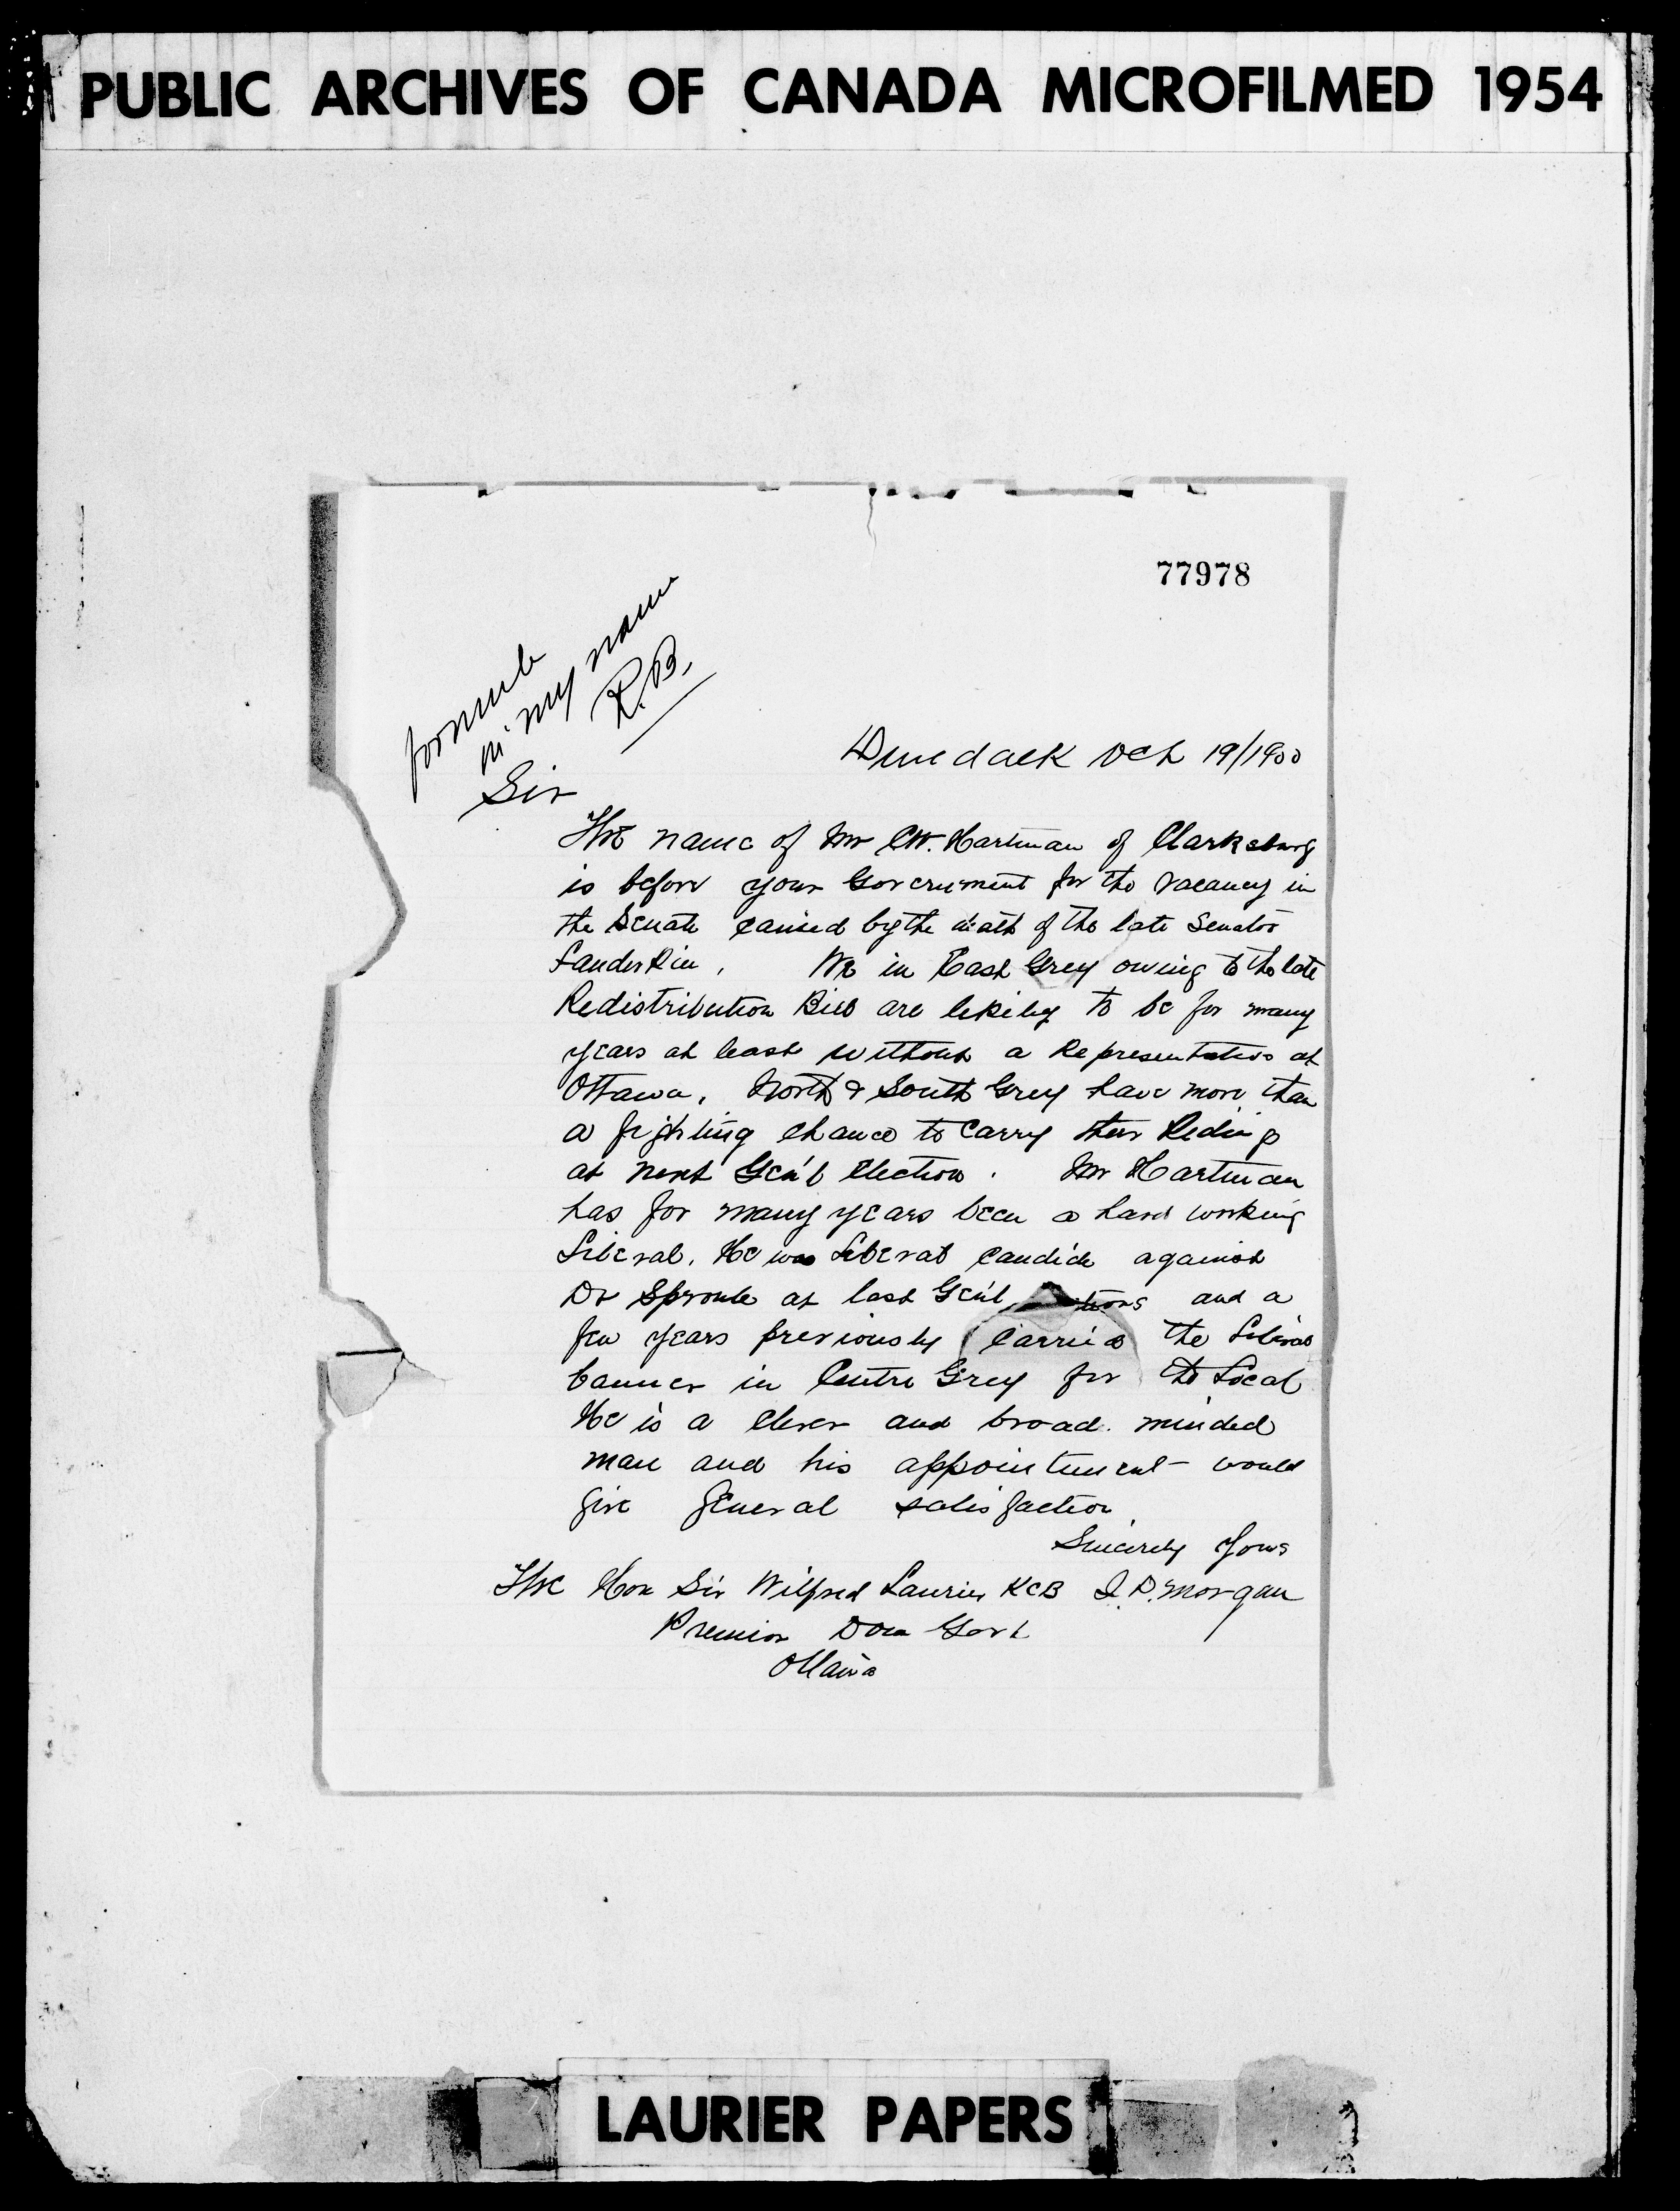 PUBLIC ARCHIVES OF CANADA MICROFILMED 1954
77978
formule
in my name
R.B.
Dundalk Oct 19/1900
Sir
The name of Mr C.W. Hartman of Clarksburg
is before your Government for the vacancy in
the Senate caused by the death of the late Senator
Landerkin. We in East Grey owing to the late
Redistribution Bill are likely to be for many
years at least without a Representative at
Ottawa. North & South Grey have more than
a fighting chance to carry their Riding
at next Gen'l Election. Mr Hartman
has for many years been a hard working
Liberal. He was Liberal candide against
Dr Sproule at last Gen'l tions and a
few years previously carried the Liberal
banner in Centre Grey for the Local
He is a clever and broad minded
man and his appointment would
give general satisfaction
Sincerely Yours
The Hon Sir Wilfred Laurier KCB J.D. Morgan
Premier Dom Govt
Ottawa
LAURIER PAPERS